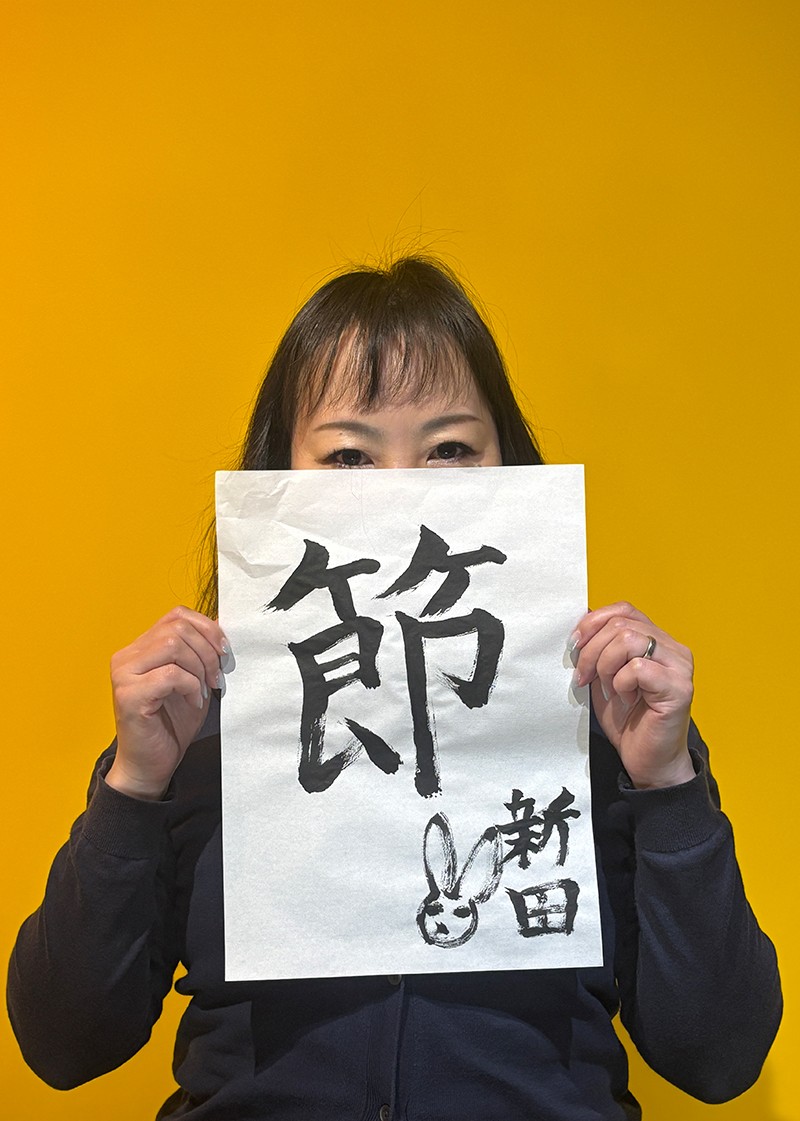 節
新田